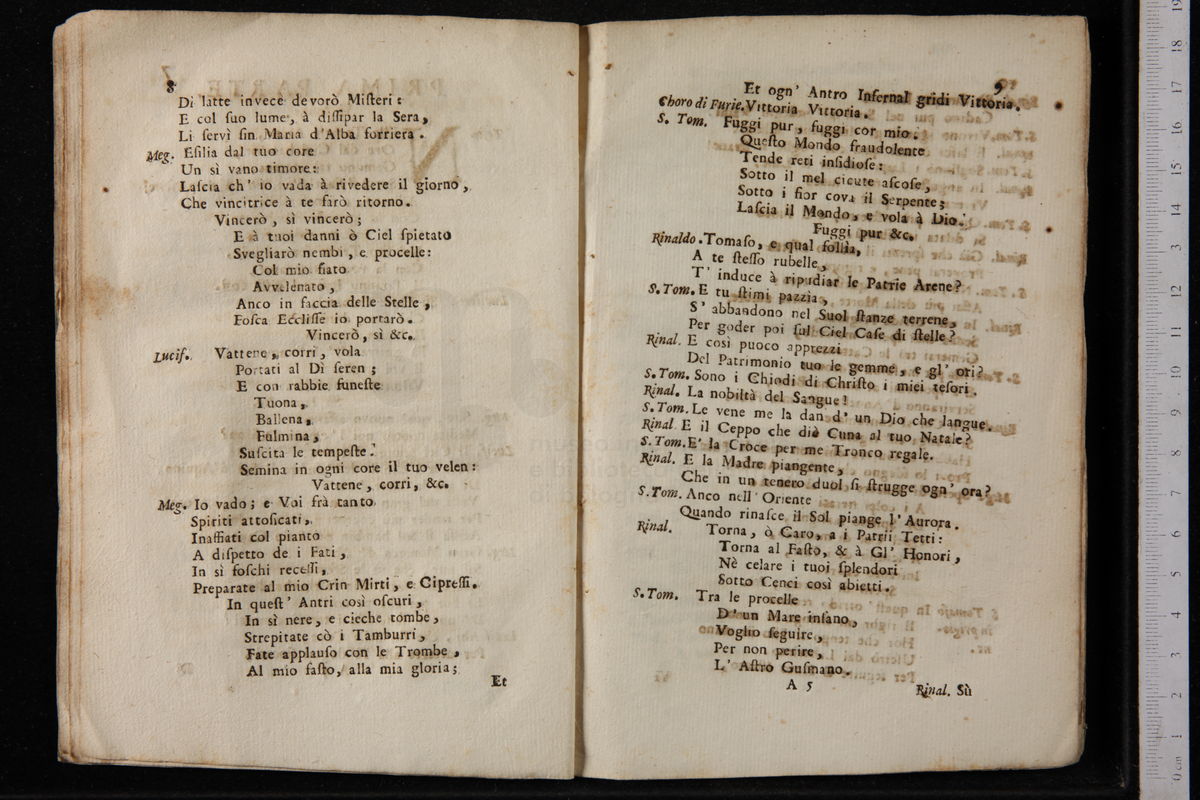 8
Di latte invece devorò Miſteri:
E col ſuo lume, à diſſipar la Sera,
Li ſervì ſin Maria d'Alba forriera.
Meg. Eſilia dal tuo core
Un sì vano timore:
Laſcia ch' io vada à rivedere il giorno,
Che vincitrice à te farò ritorno.
Vincerò, sì vincerò;
E à tuoi danni ò Ciel ſpietato
Svegliarò nembi, e procelle:
Col mio fiato
Avvelenato,
Anco in faccia delle Stelle,
Foſca Ecliſſe io portarò.
Vincerò, sì &c.
Lucif. Vattene, corri, vola
Portati al Dì ſeren;
E con rabbie funeſte
Tuona,
Ballena,
Fulmina,
Suſcita le tempeſte:
Semina in ogni core il tuo velen:
Vattene, corri, &c.
Meg. Io vado; e Voi frà tanto
Spiriti attoſicati,
Inaffiati col pianto
A diſpetto de i Fati,
In sì foſchi receſſi,
Preparate al mio Crin Mirti, e Cipreſſi.
In queſt' Antri così oſcuri,
In sì nere, e cieche tombe,
Strepitate cò i Tamburri,
Fate applauſo con le Trombe,
Al mio faſto, alla mia gloria;
Et
9
Et ogn' Antro Infernal gridi Vittoria.
Choro di Furie. Vittoria Vittoria.
S. Tom. Fuggi pur, fuggi cor mio.
Queſto Mondo fraudolente
Tende reti inſidioſe:
Sotto il mel cicute aſcoſe,
Sotto i fior cova il Serpente;
Laſcia il Mondo, e vola à Dio.
Fuggi pur &c.
Rinaldo. Tomaſo, e qual follia,
A te ſteſſo rubelle,
T' induce à ripudiar le Patrie Arene?
S. Tom. E tu ſtimi pazzia,
S' abbandono nel Suol ſtanze terrene,
Per goder poi ſul Ciel Caſe di ſtelle?
Rinal. E così puoco apprezzi
Del Patrimonio tuo le gemme, e gl' ori?
S. Tom. Sono i Chiodi di Chriſto i miei teſori.
Rinal. La nobiltà del Sangue!
S. Tom. Le vene me la dan d' un Dio che langue.
Rinal. E il Ceppo che diè Cuna al tuo Natale?
S. Tom. E' la Croce per me Tronco regale.
Rinal. E la Madre piangente,
Che in un tenero duol ſi ſtrugge ogn' ora?
S. Tom. Anco nell' Oriente
Quando rinaſce il Sol piange l' Aurora.
Rinal. Torna, ò Caro, a i Patrii Tetti:
Torna al Faſto, & à Gl' Honori,
Nè celare i tuoi ſplendori
Sotto Cenci così abietti.
S. Tom. Tra le procelle
D' un Mare inſano,
Voglio ſeguire,
Per non perire,
L' Aſtro Guſmano.
A 5
Rinal. Sù
0 cm 1 2 3 4 5 6 7 8 9 10 11 12 13 14 15 16 17 18 19